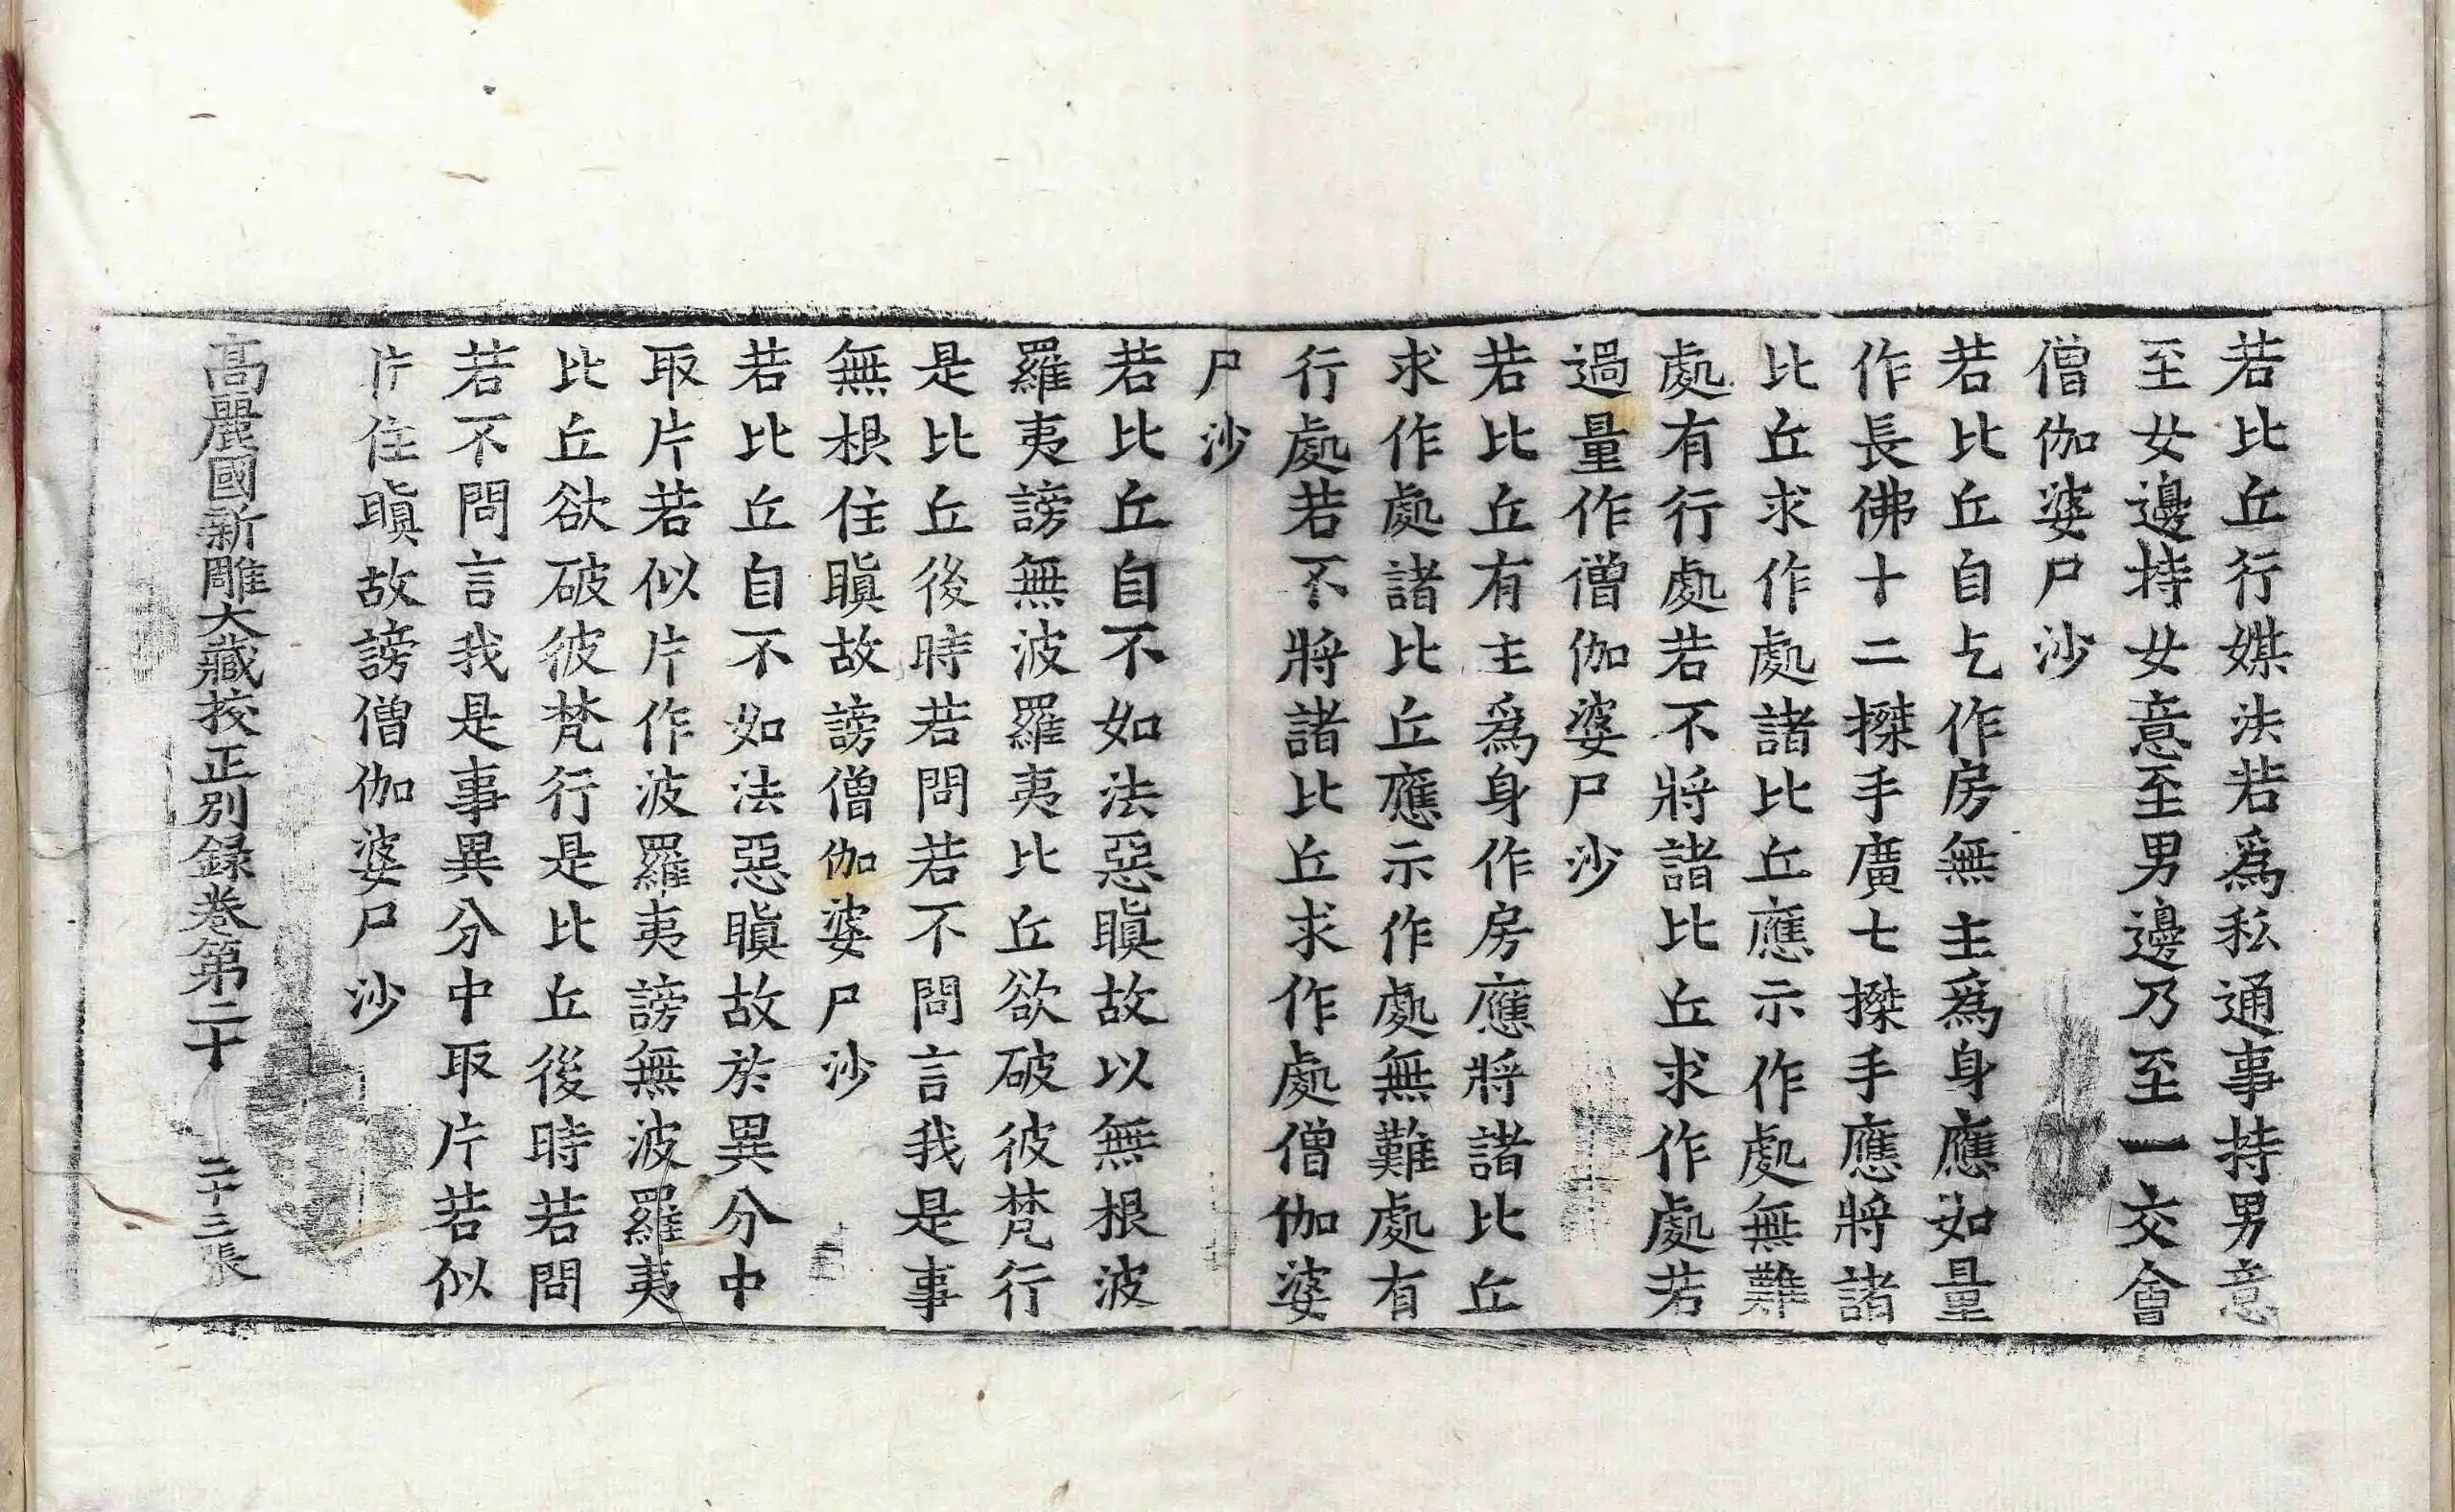 若比丘行媒法若爲私通事持男意
至女邊持女意至男邊乃至一交會
僧伽婆尸沙
若比丘自乞作房無主爲身應如量
作長佛十二搩手廣七搩手應將諸
比丘求作處諸比丘應示作處無難
處有行處若不將諸比丘求作處若
過量作僧伽婆尸沙
若比丘有主爲身作房應將諸比丘
求作處諸比丘應示作處無難處有
行處若不將諸比丘求作處僧伽婆
尸沙
若比丘自不如法惡瞋故以無根波
羅夷謗無波羅夷比丘欲破彼梵行
是比丘後時若問若不問言我是事
無根住瞋故謗僧伽婆尸沙
若比丘自不如法惡瞋故於異分中
取片若似片作波羅夷謗無波羅夷
比丘欲破彼梵行是比丘後時若問
若不問言我是事異分中取片若似
片住瞋故謗僧伽婆尸沙
高麗國新雕大藏挍正別録卷第二十 二十三張